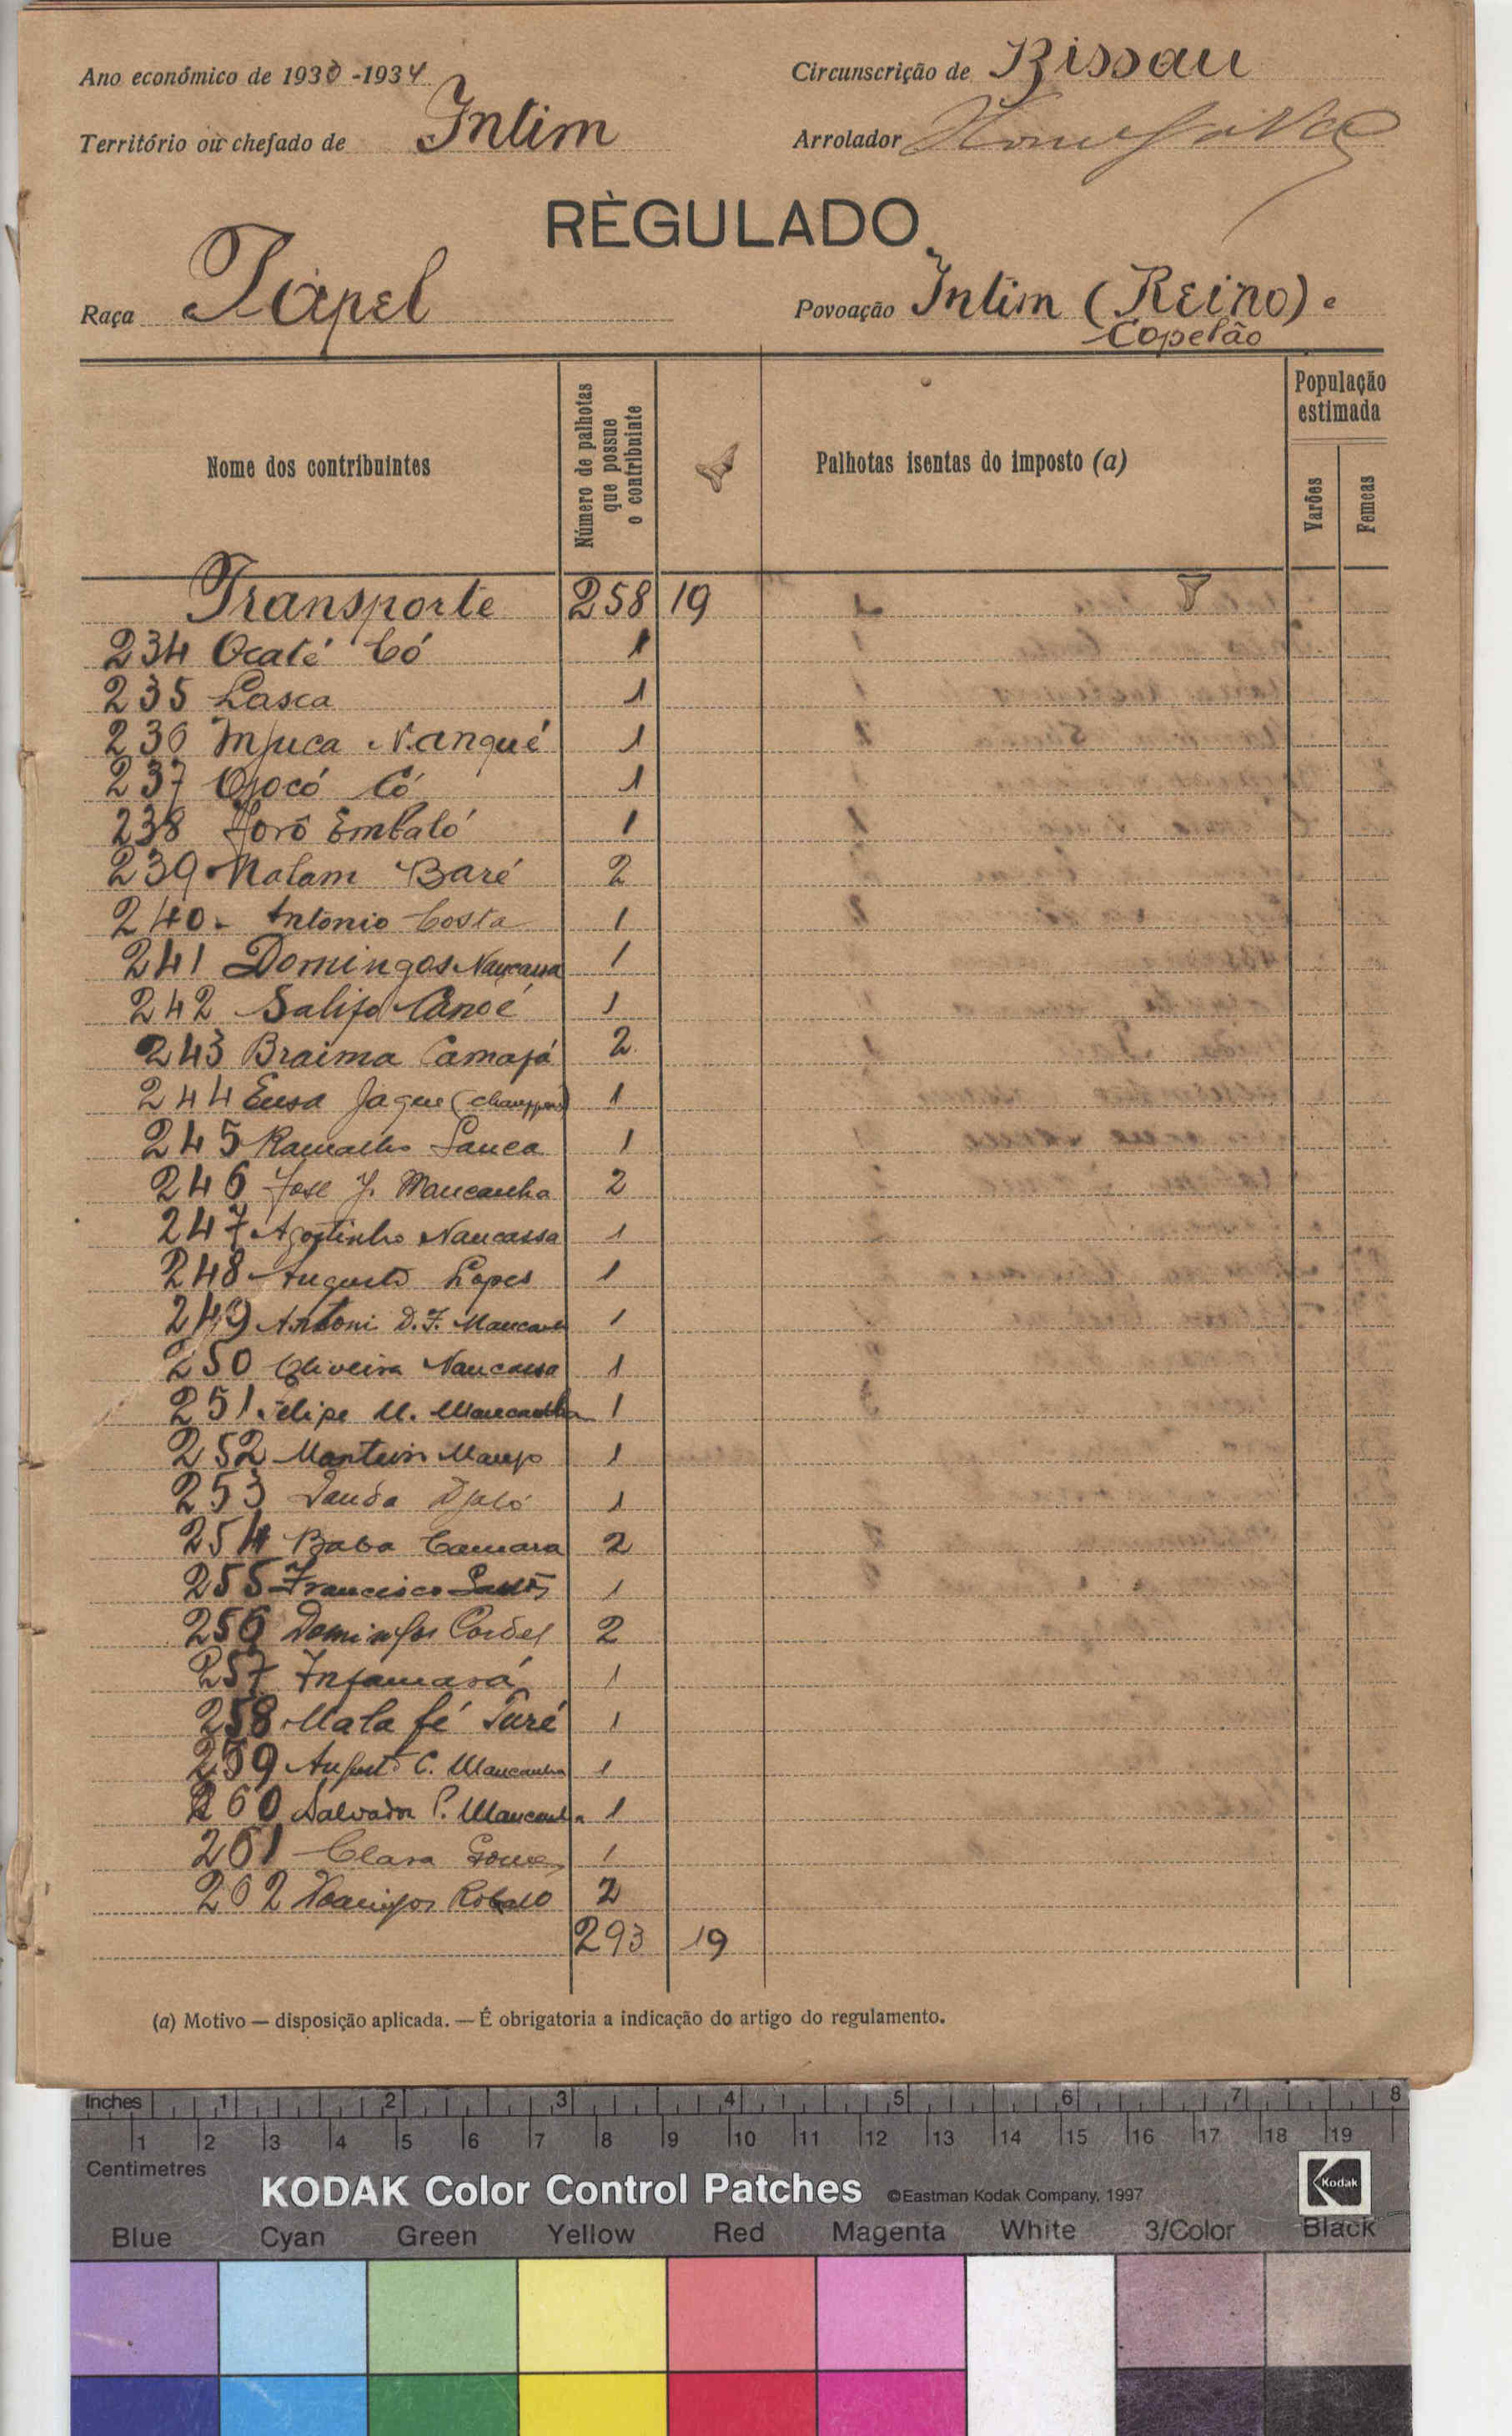 Ano económico de 1930-1934
Circunscrição de Bissau
Território ou chefado de Intim
Arrolador
RÈGULADO
Raça Papel
Povoação Intim (Reino) e
Copelão
Nome dos contribuintes
Número de palhotas
que possue
o contribuinte
Palhotas isentas do imposto (a)
População
estimada
Varões
Femeas
Transporte 258 19
234 Ocaté Có 1
235 Lasca 1
236 Mjuca Nanqué 1
237 Ojocó Có 1
238 Joró Embaló 1
239 Malam Baré 2
240 - António Costa 1
241 Domingos Nancassa 1
242 Salifo Canoé 1
243 Braima Camajá 2
244 Eusa Jaque 1
245 Ramalho Sanca 1
246 José J. Mancanha 2
247 Agostinho Nancassa 1
248 Augusto Lopes 1
249 Antoni D. F. Mancanh 1
250 Oliveira Nancassa 1
251 Felipe M. Mancanha 1
252 Monteiro 1
253 Dauda Djaló 1
254 Baba Camara 2
255 Francisco Santos 1
256 Domingos 2
257 Infamará 1
258 Malafé Turé 1
259 August C. Mancanha 1
260 Salvador P. Mancanha 1
261 Clara Gomes 1
262 Domingos Robalo 2
293 19
(a) Motivo — disposição aplicada. — É obrigatoria a indicação do artigo do regulamento.
Inches 1 2 3 4 5 6 7 8
1 2 3 4 5 6 7 8 9 10 11 12 13 14 15 16 17 18 19
Centimetres
KODAK Color Control Patches ©Eastman Kodak Company, 1997 Kodak
Blue Cyan Green Yellow Red Magenta White 3/Color Black